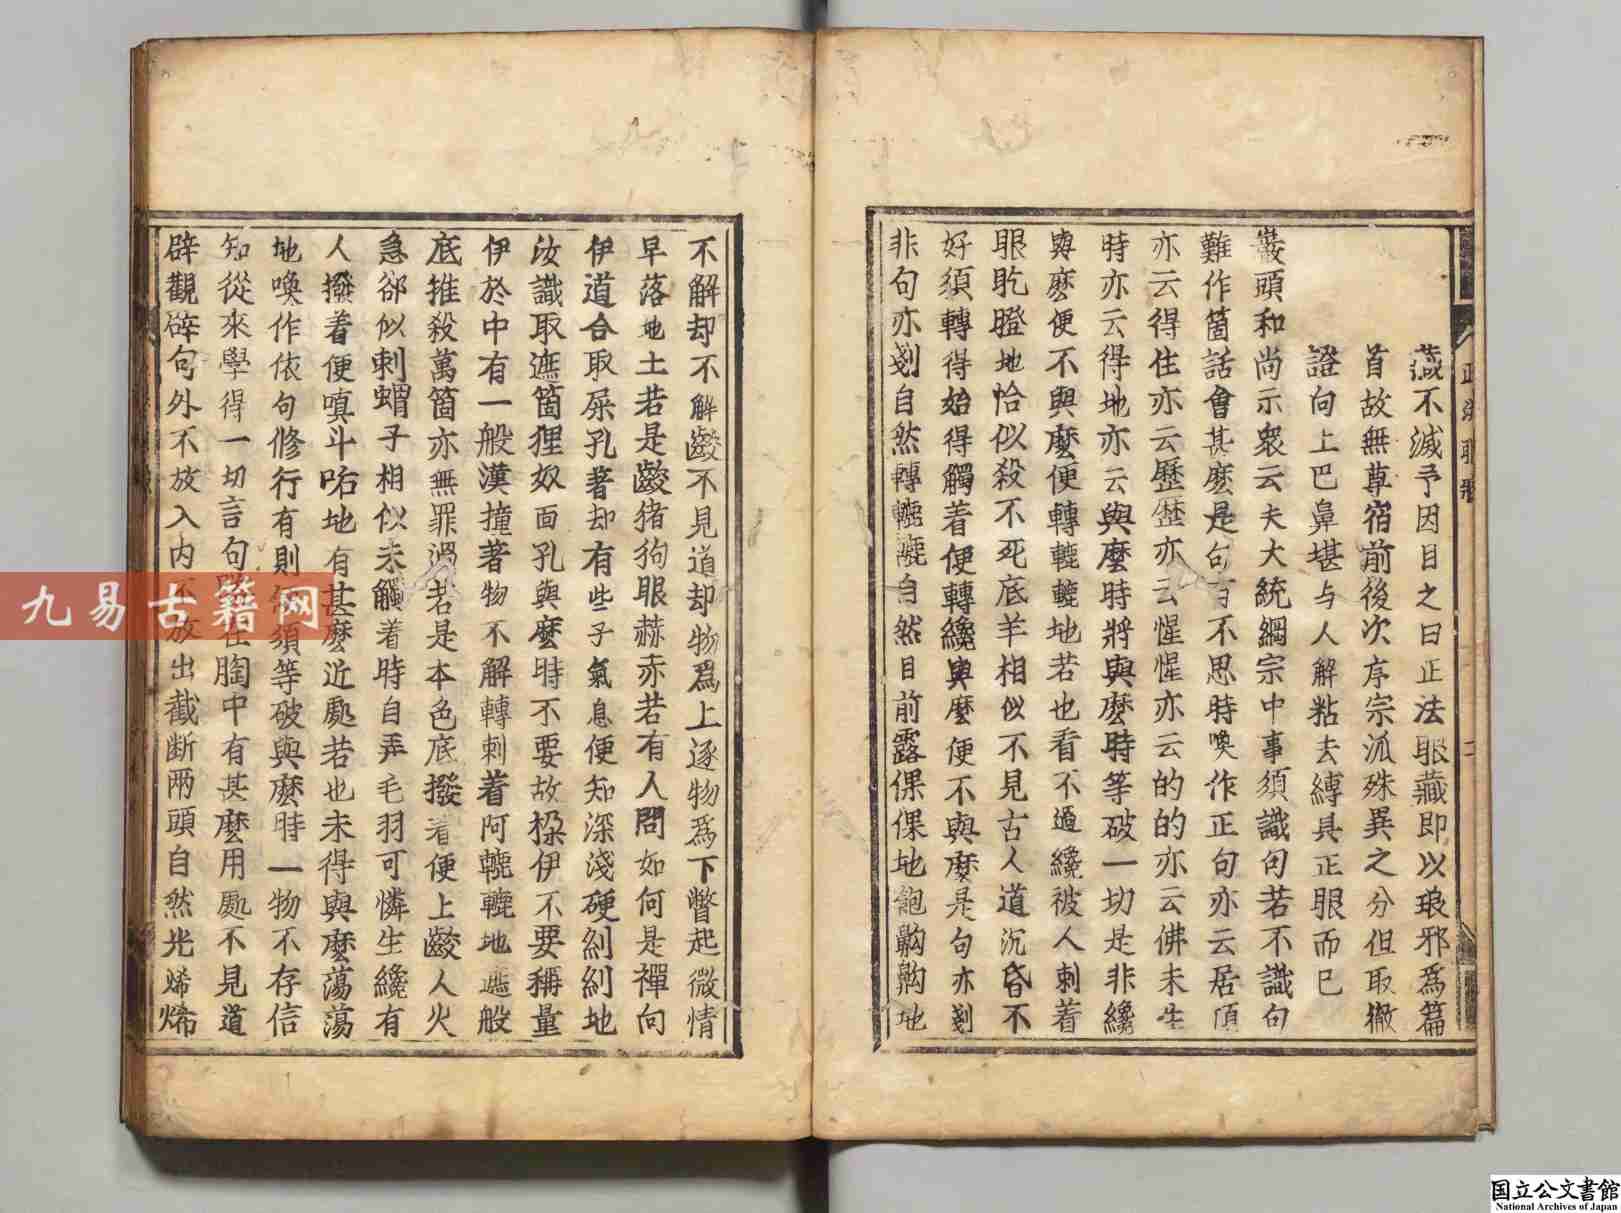 藏不滅予因目之曰正法眼藏即以琅邪為篇
首故無尊宿前後次序宗派殊異之分但取徹
證向上巴鼻堪与人解粘去縛具正眼而已
巖頭和尚示衆云夫大統綱宗中事須識句若不識句
難作箇話會甚麽是句百不思時喚作正句亦云居頂
亦云得住亦云歷歷亦云惺惺亦云的的亦云佛未生
時亦云得地亦云與麽時將與麽時等破一切是非纔
與麽便不與麽便轉轆轆地若也看不過纔被人刺着
眼盵瞪地恰似殺不死底羊相似不見古人道沉昏不
好須轉得始得觸着便轉纔與麽便不與麽是句亦剗
非句亦剗自然轉轆轆自然目前露倮倮地飽齁齁地
不解却不解齩不見道却物為上逐物為下瞥起微情
早落地土若是齩猪狗眼赫赤若有人問如何是禪向
伊道合取屎孔著却有些子氣息便知深淺硬糾糾地
汝識取遮箇狸奴面孔與麽時不要故桗伊不要稱量
伊於中有一般漢撞著物不解轉刺着阿轆轆地遮般
底推殺萬箇亦無罪過若是本色底撥着便上齩人火
急卻似刺蝟子相似未觸着時自弄毛羽可憐生纔有
人撥着便嗔斗㕭地有甚麽近處若也未得與麽蕩蕩
地喚作依句修行有則須等破與麽時一物不存信
知從來學得一切言句在胸中有甚麽用處不見道
辟觀辟句外不放入内不放出截断兩頭自然光烯烯
九易古籍网
国立公文書館
National Archives of Japan